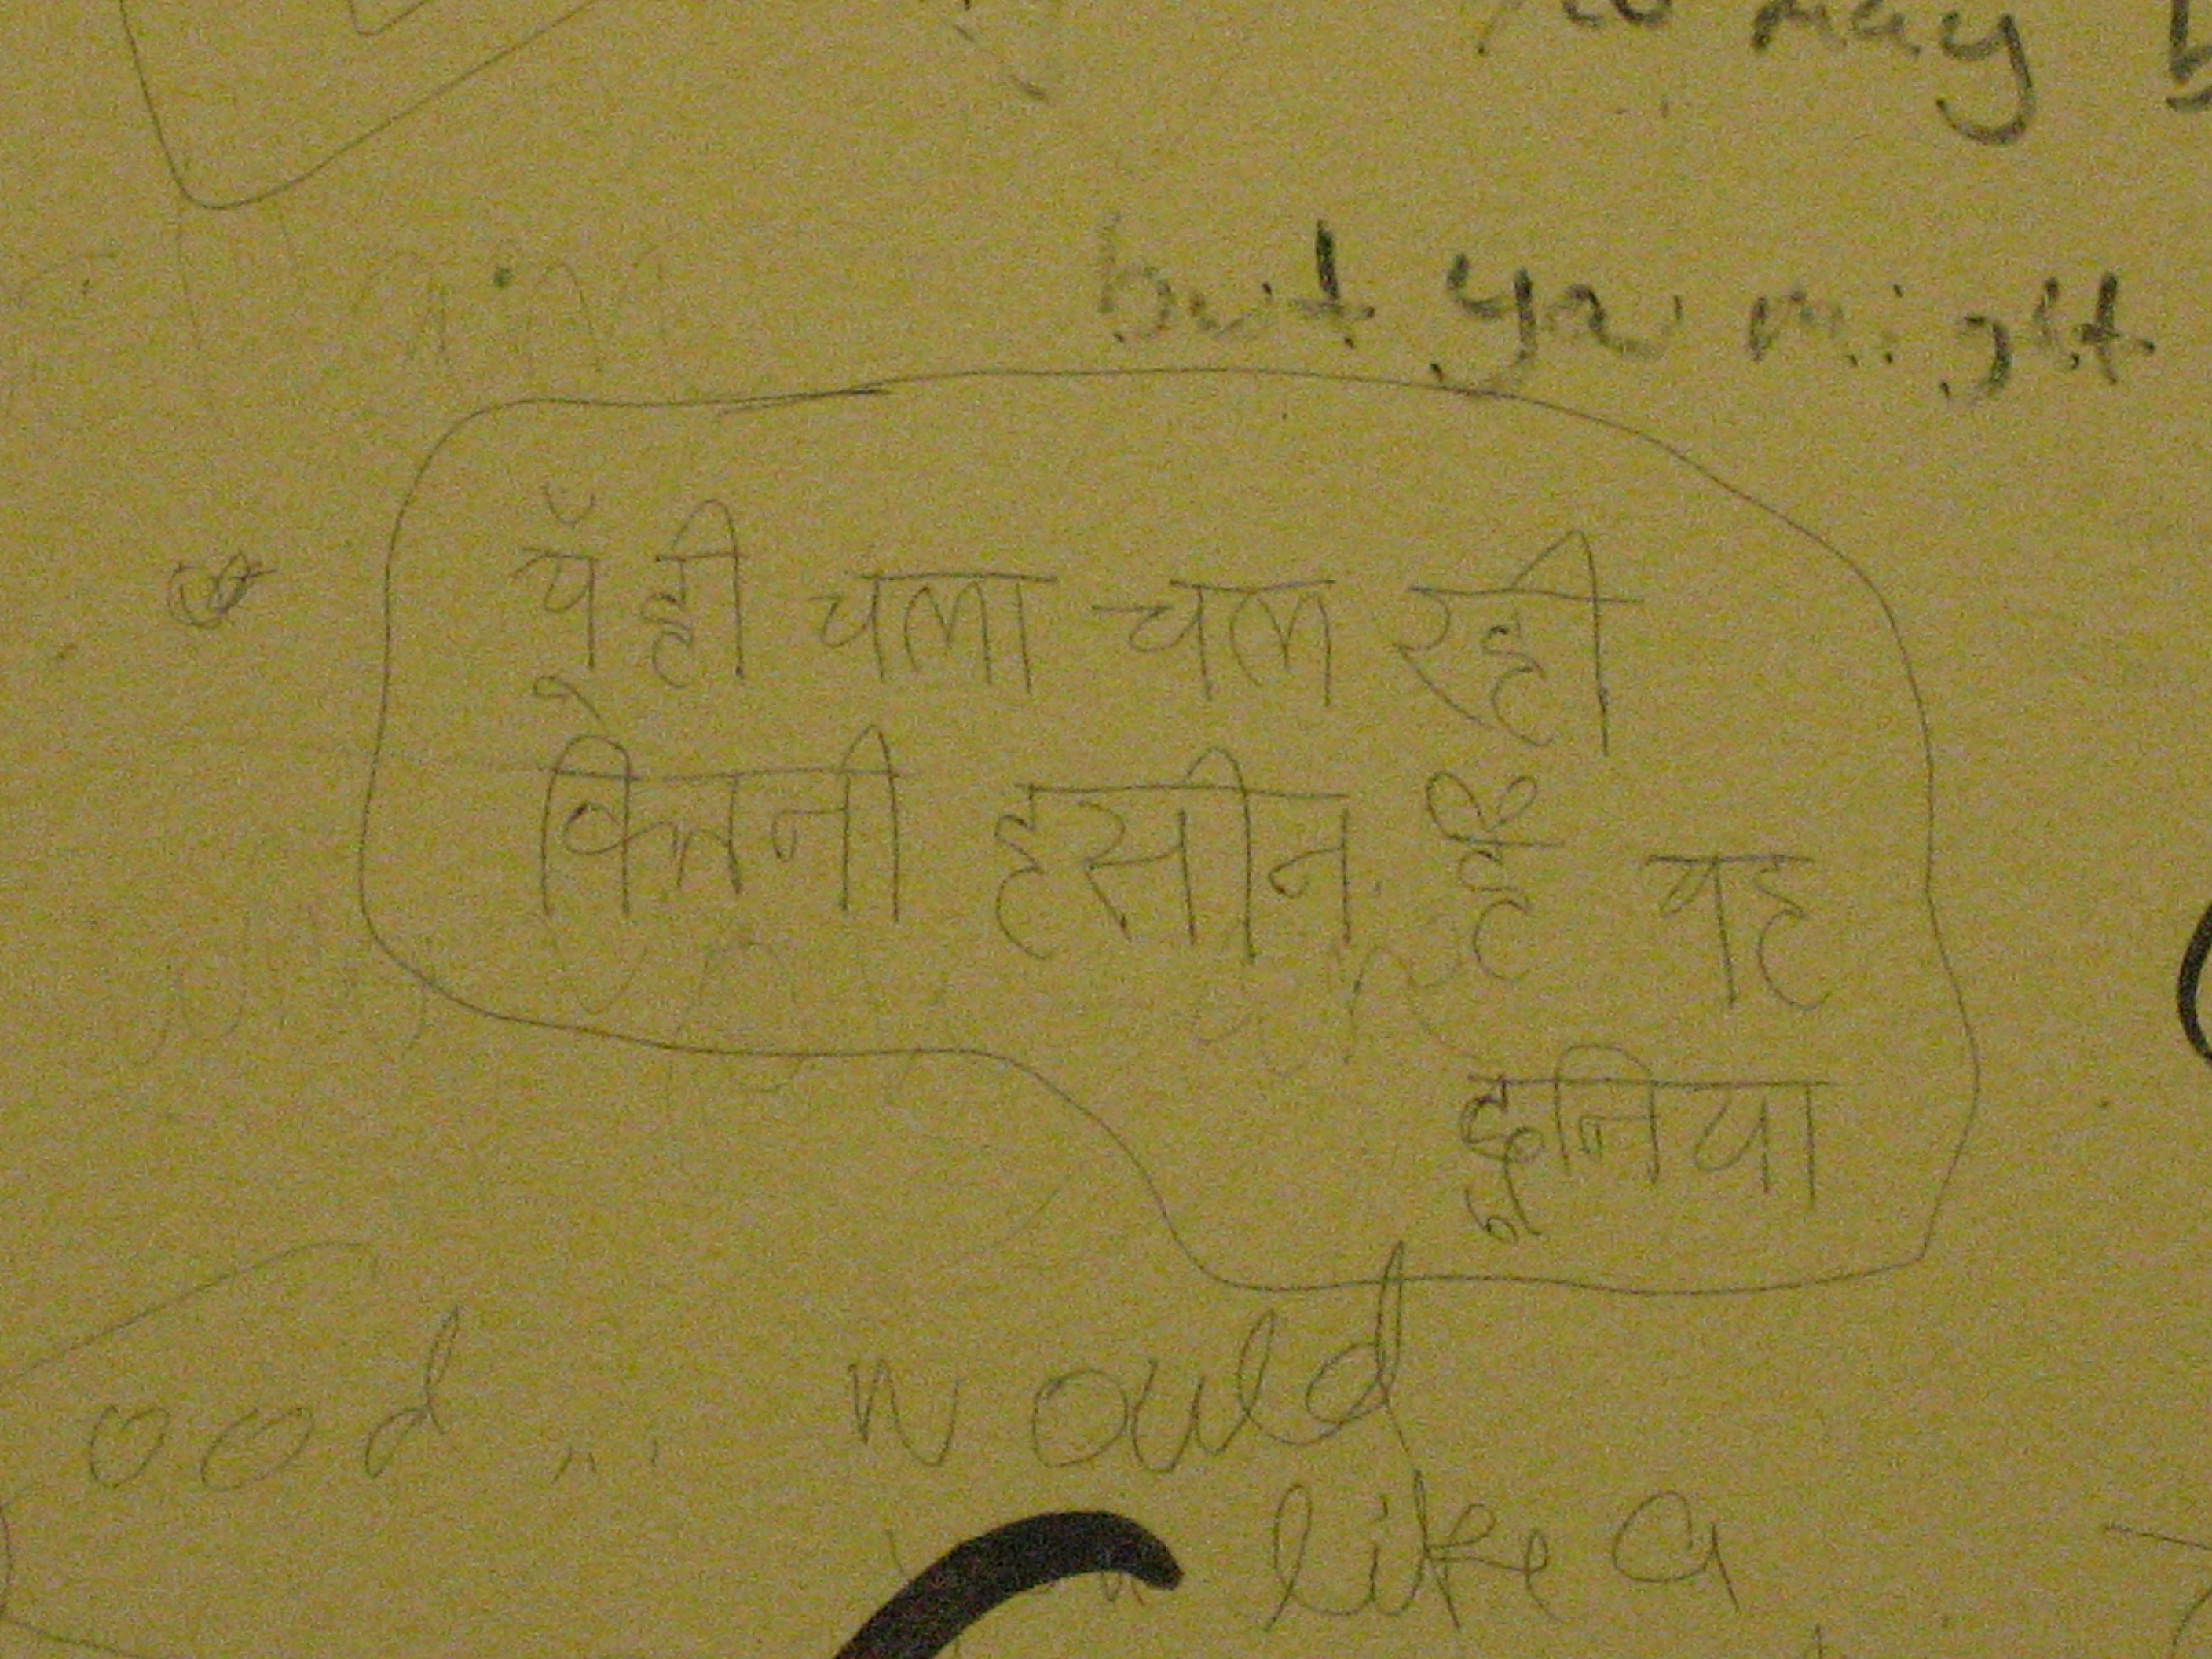 may
but ya might
यूँ ही चला चल रही
कितनी हसीन है यह
दुनिया
ood ... would
like a